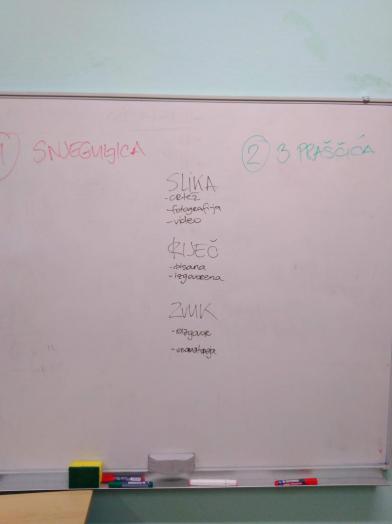 1 SNJEGULJICA
2 3 PRAŠČIĆA
SLIKA
- crtež
- fotografija
- video
RIJEČ
- pisana
- izgovorena
ZVUK
- razgovor